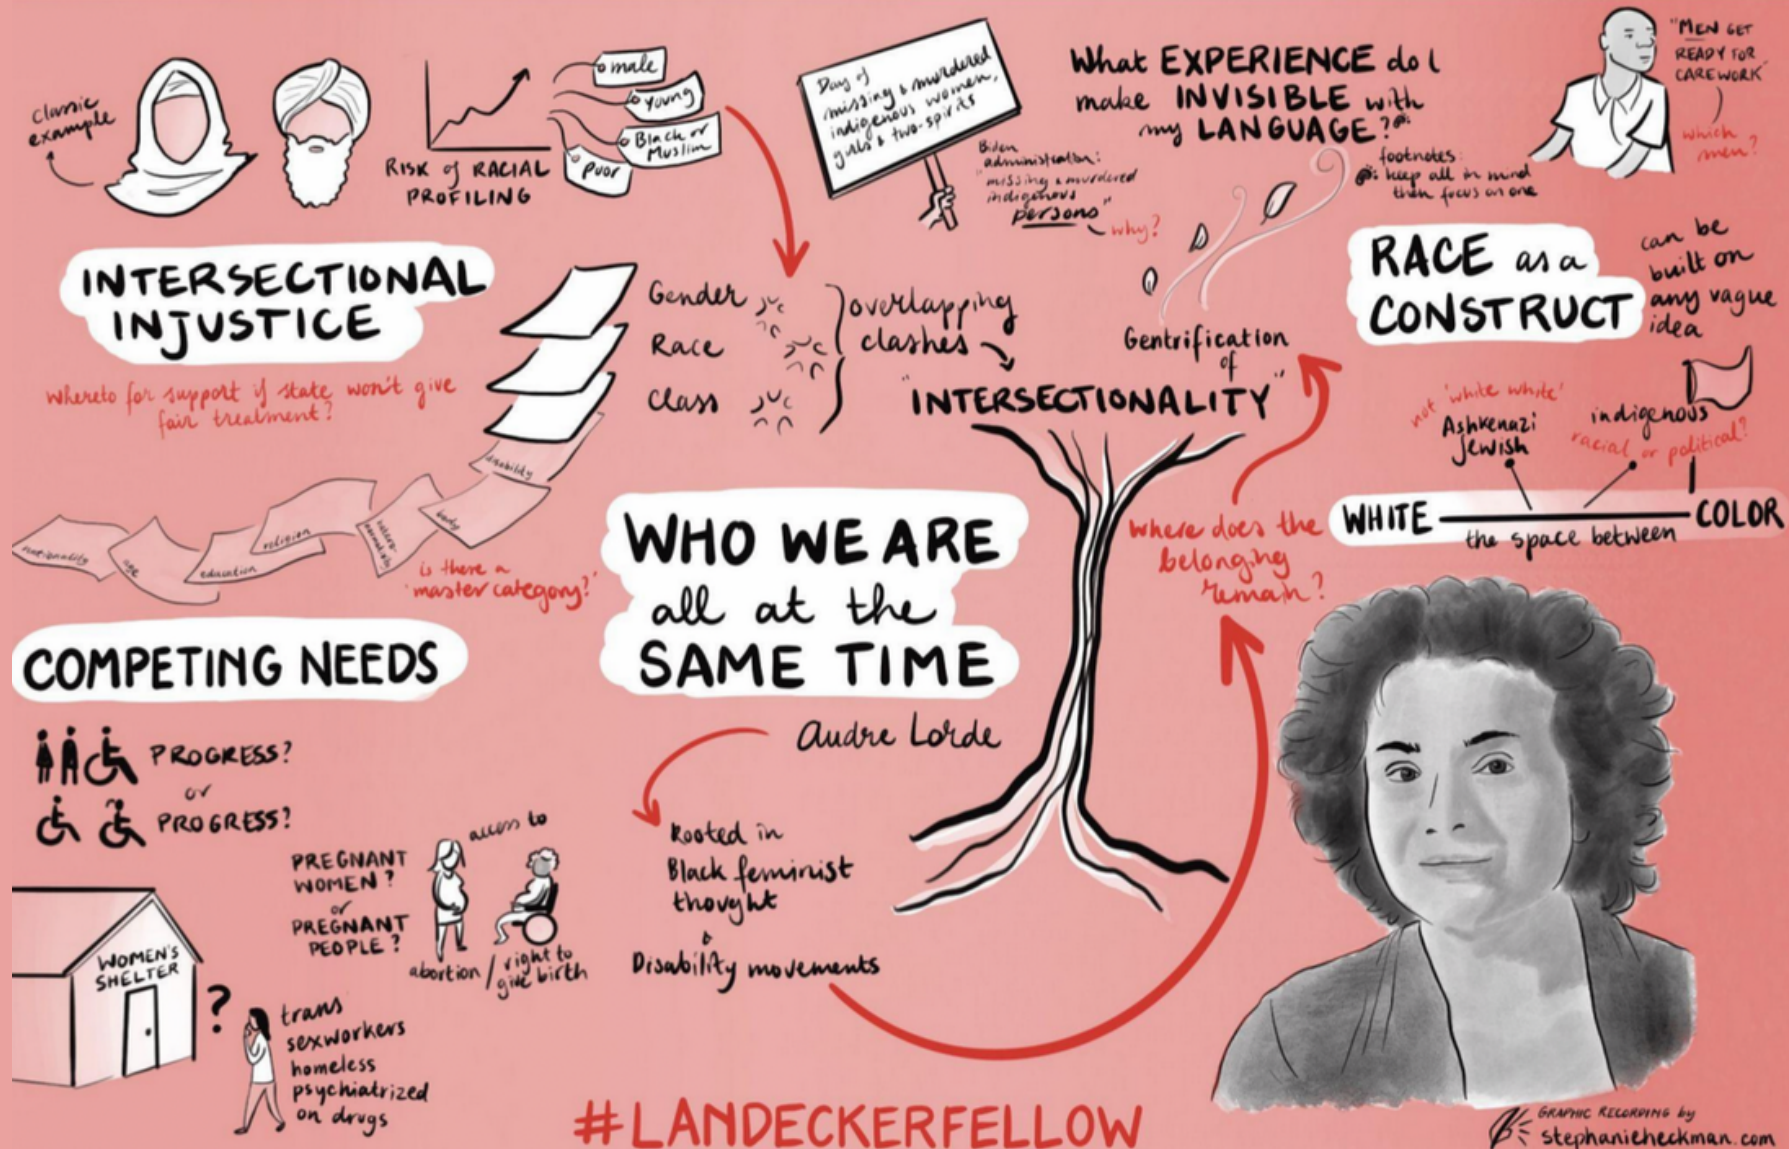 classic
example
RISK of RACIAL
PROFILING
male
young
Black or
Muslim
poor
Day of
missing & murdered
indigenous women,
girls & two-spirits
Biden
administration:
"missing & murdered
indigenous
persons"
why?
What EXPERIENCE do I
make INVISIBLE with
my LANGUAGE?
footnotes:
keep all in mind
then focus on one
"MEN GET
READY FOR
CAREWORK"
which
men?
INTERSECTIONAL
INJUSTICE
Whereto for support if state won't give
fair treatment?
Gender
Race
Class
overlapping
clashes
Gentrification
of
"INTERSECTIONALITY"
RACE as a
CONSTRUCT
can be
built on
any vague
idea
not 'white white'
Ashkenazi
Jewish
indigenous
racial or political?
WHITE
COLOR
the space between
disability
body
religion
education
age
nationality
is there a
'master category?'
WHO WE ARE
all at the
SAME TIME
Audre Lorde
Where does the
belonging
remain?
COMPETING NEEDS
PROGRESS?
or
PROGRESS?
PREGNANT
WOMEN?
or
PREGNANT
PEOPLE?
access to
abortion / right to
give birth
Rooted in
Black feminist
thought
&
Disability movements
WOMEN'S
SHELTER
?
trans
sexworkers
homeless
psychiatrized
on drugs
#LANDECKERFELLOW
GRAPHIC RECORDING by
stephanieheckman.com